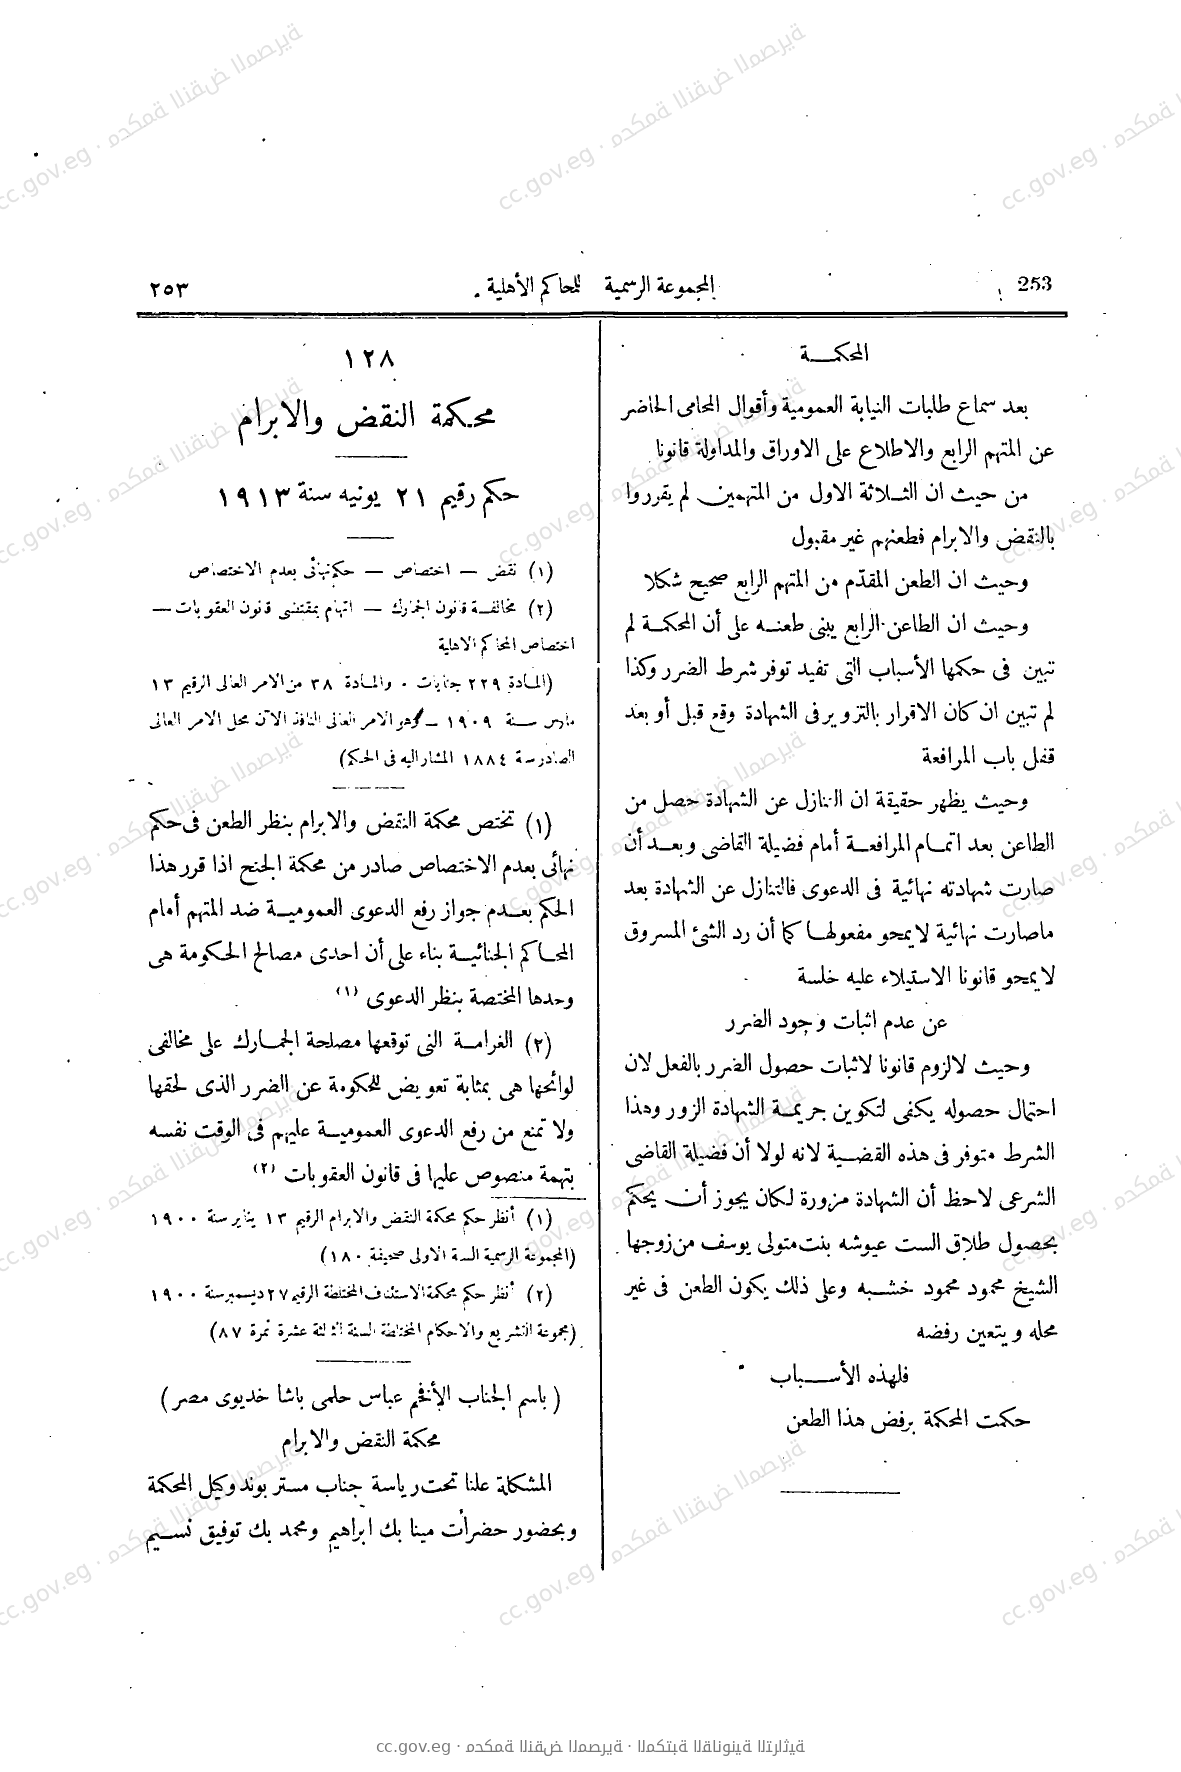 253 المجموعة الرسمية للمحاكم الأهلية . ٢٥٣
المحكمــة
بعد سماع طلبات النيابة العمومية وأقوال المحامى الحاضر
عن المتهم الرابع والاطلاع على الاوراق والمداولة قانونا
من حيث ان الثـلاثة الاول من المتهمين لم يقرروا
بالنقض والابرام فطعنهم غير مقبول
وحيث ان الطعن المقدّم من المتهم الرابع صحيح شكلا
وحيث ان الطاعن الرابع يبنى طعنـه على أن المحكمـة لم
تبين فى حكمها الأسباب التى تفيد توفر شرط الضرر وكذا
لم تبين ان كان الاقرار بالتزوير فى الشهادة وقع قبل أو بعد
قفل باب المرافعة
وحيث يظهر حقيقة ان التنازل عن الشهادة حصل من
الطاعن بعد اتمـام المرافعـة أمام فضيلة القاضى وبعـد أن
صارت شهادته نهائية فى الدعوى فالتنازل عن الشهادة بعد
ماصارت نهائية لايمحو مفعولهـا كما أن رد الشئ المسروق
لايمحو قانونا الاستيلاء عليه خلسة
عن عدم اثبات وجود الضرر
وحيث لالزوم قانونا لاثبات حصول الضرر بالفعل لان
احتمال حصوله يكفى لتكوين جريمـة الشهادة الزور وهذا
الشرط متوفر فى هذه القضـية لانه لولا أن فضيلة القاضى
الشرعى لاحظ أن الشهادة مزورة لكان يجوز أن يحكم
بحصول طلاق الست عيوشه بنت متولى يوسف من زوجها
الشيخ محمود محمود خشـبه وعلى ذلك يكون الطعن فى غير
محله ويتعين رفضه
فلهذه الأسـباب
حكمت المحكمة برفض هذا الطعن
١٢٨
محكمة النقض والابرام
حكم رقيم ٢١ يونيه سنة ١٩١٣
(١) نقض — اختصاص — حكم نهائى بعدم الاختصاص
(٢) مخالفـة قانون الجمارك — اتهام بمقتضى قانون العقوبات —
اختصاص المحاكم الاهلية
(المـادة ٢٢٩ جنايات . والمـادة ٣٨ من الامر العالى الرقيم ١٣
مارس سـنة ١٩٠٩ — وهو الامر العالى النافذ الآن محل الامر العالى
الصادر سنة ١٨٨٤ المشار اليه فى الحكم)
(١) تختص محكمة النقض والابرام بنظر الطعن فى حكم
نهائى بعدم الاختصاص صادر من محكمة الجنح اذا قرر هذا
الحكم بعـدم جواز رفع الدعوى العموميـة ضد المتهم أمام
المحـاكم الجنائيـة بناء على أن احدى مصالح الحكومة هى
وحدها المختصة بنظر الدعوى (١)
(٢) الغرامـة التى توقعها مصلحة الجمـارك على مخالفى
لوائحها هى بمثابة تعويض للحكومة عن الضرر الذى لحقها
ولا تمنع من رفع الدعوى العموميـة عليهم فى الوقت نفسه
بتهمة منصوص عليها فى قانون العقوبات (٢)
(١) أنظر حكم محكمة النقض والابرام الرقيم ١٣ يناير سنة ١٩٠٠
(المجموعة الرسمية السنة الاولى صحيفة ١٨٠)
(٢) أنظر حكم محكمة الاستئناف المختلطة الرقيم ٢٧ ديسمبر سنة ١٩٠٠
(مجموعة التشريع والاحكام المختلطة السنة الثالثة عشرة نمرة ٨٧)
( باسم الجناب الأفخم عباس حلمى باشا خديوى مصر )
محكمة النقض والابرام
المشكلة علنا تحت رياسة جناب مستر بوند وكيل المحكمة
وبحضور حضرات مينا بك ابراهيم ومحمد بك توفيق نسـيم
cc.gov.eg · محكمة النقض المصرية · المكتبة القانونية التراثية